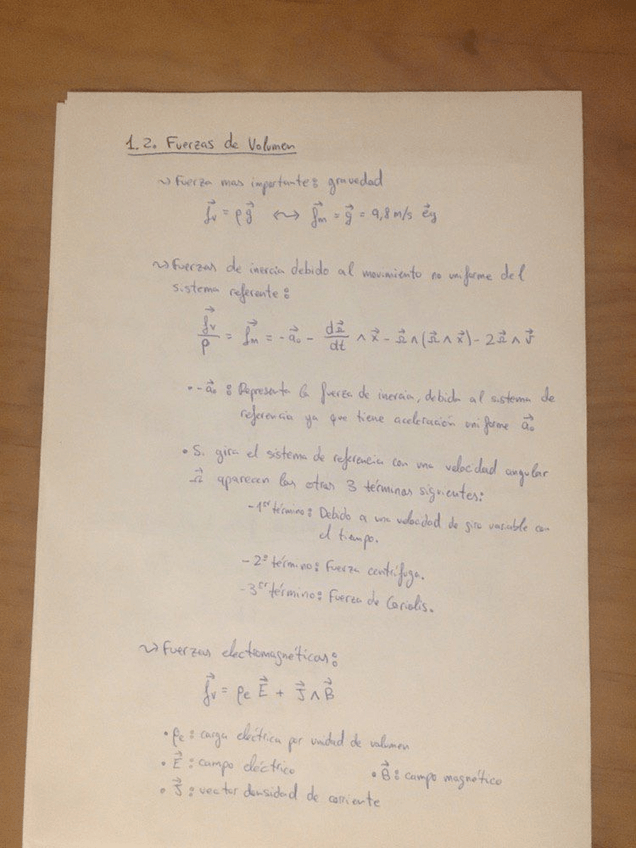 1.2. Fuerzas de Volumen
~> Fuerza mas importante: gravedad
f⃗v = ρg⃗ <~> f⃗m = g⃗ = 9,8 m/s e⃗y
~> Fuerzas de inercia debido al movimiento no uniforme del
sistema referente:
f⃗v/ρ = f⃗m = -a⃗o - dΩ⃗/dt ∧ x⃗ - Ω⃗ ∧ (Ω⃗ ∧ x⃗) - 2Ω⃗ ∧ v⃗
• -a⃗o : Representa la fuerza de inercia, debida al sistema de
referencia ya que tiene aceleración uniforme a⃗o
• Si gira el sistema de referencia con una velocidad angular
Ω⃗ aparecen los otros 3 términos siguientes:
- 1er término: Debido a una velocidad de giro variable con
el tiempo.
- 2º término: Fuerza centrífuga.
- 3er término: Fuerza de Coriolis.
~> Fuerzas electromagnéticas:
f⃗v = ρe E⃗ + J⃗ ∧ B⃗
• ρe : carga eléctrica por unidad de volumen
• E⃗ : campo eléctrico • B⃗ : campo magnético
• J⃗ : vector densidad de corriente